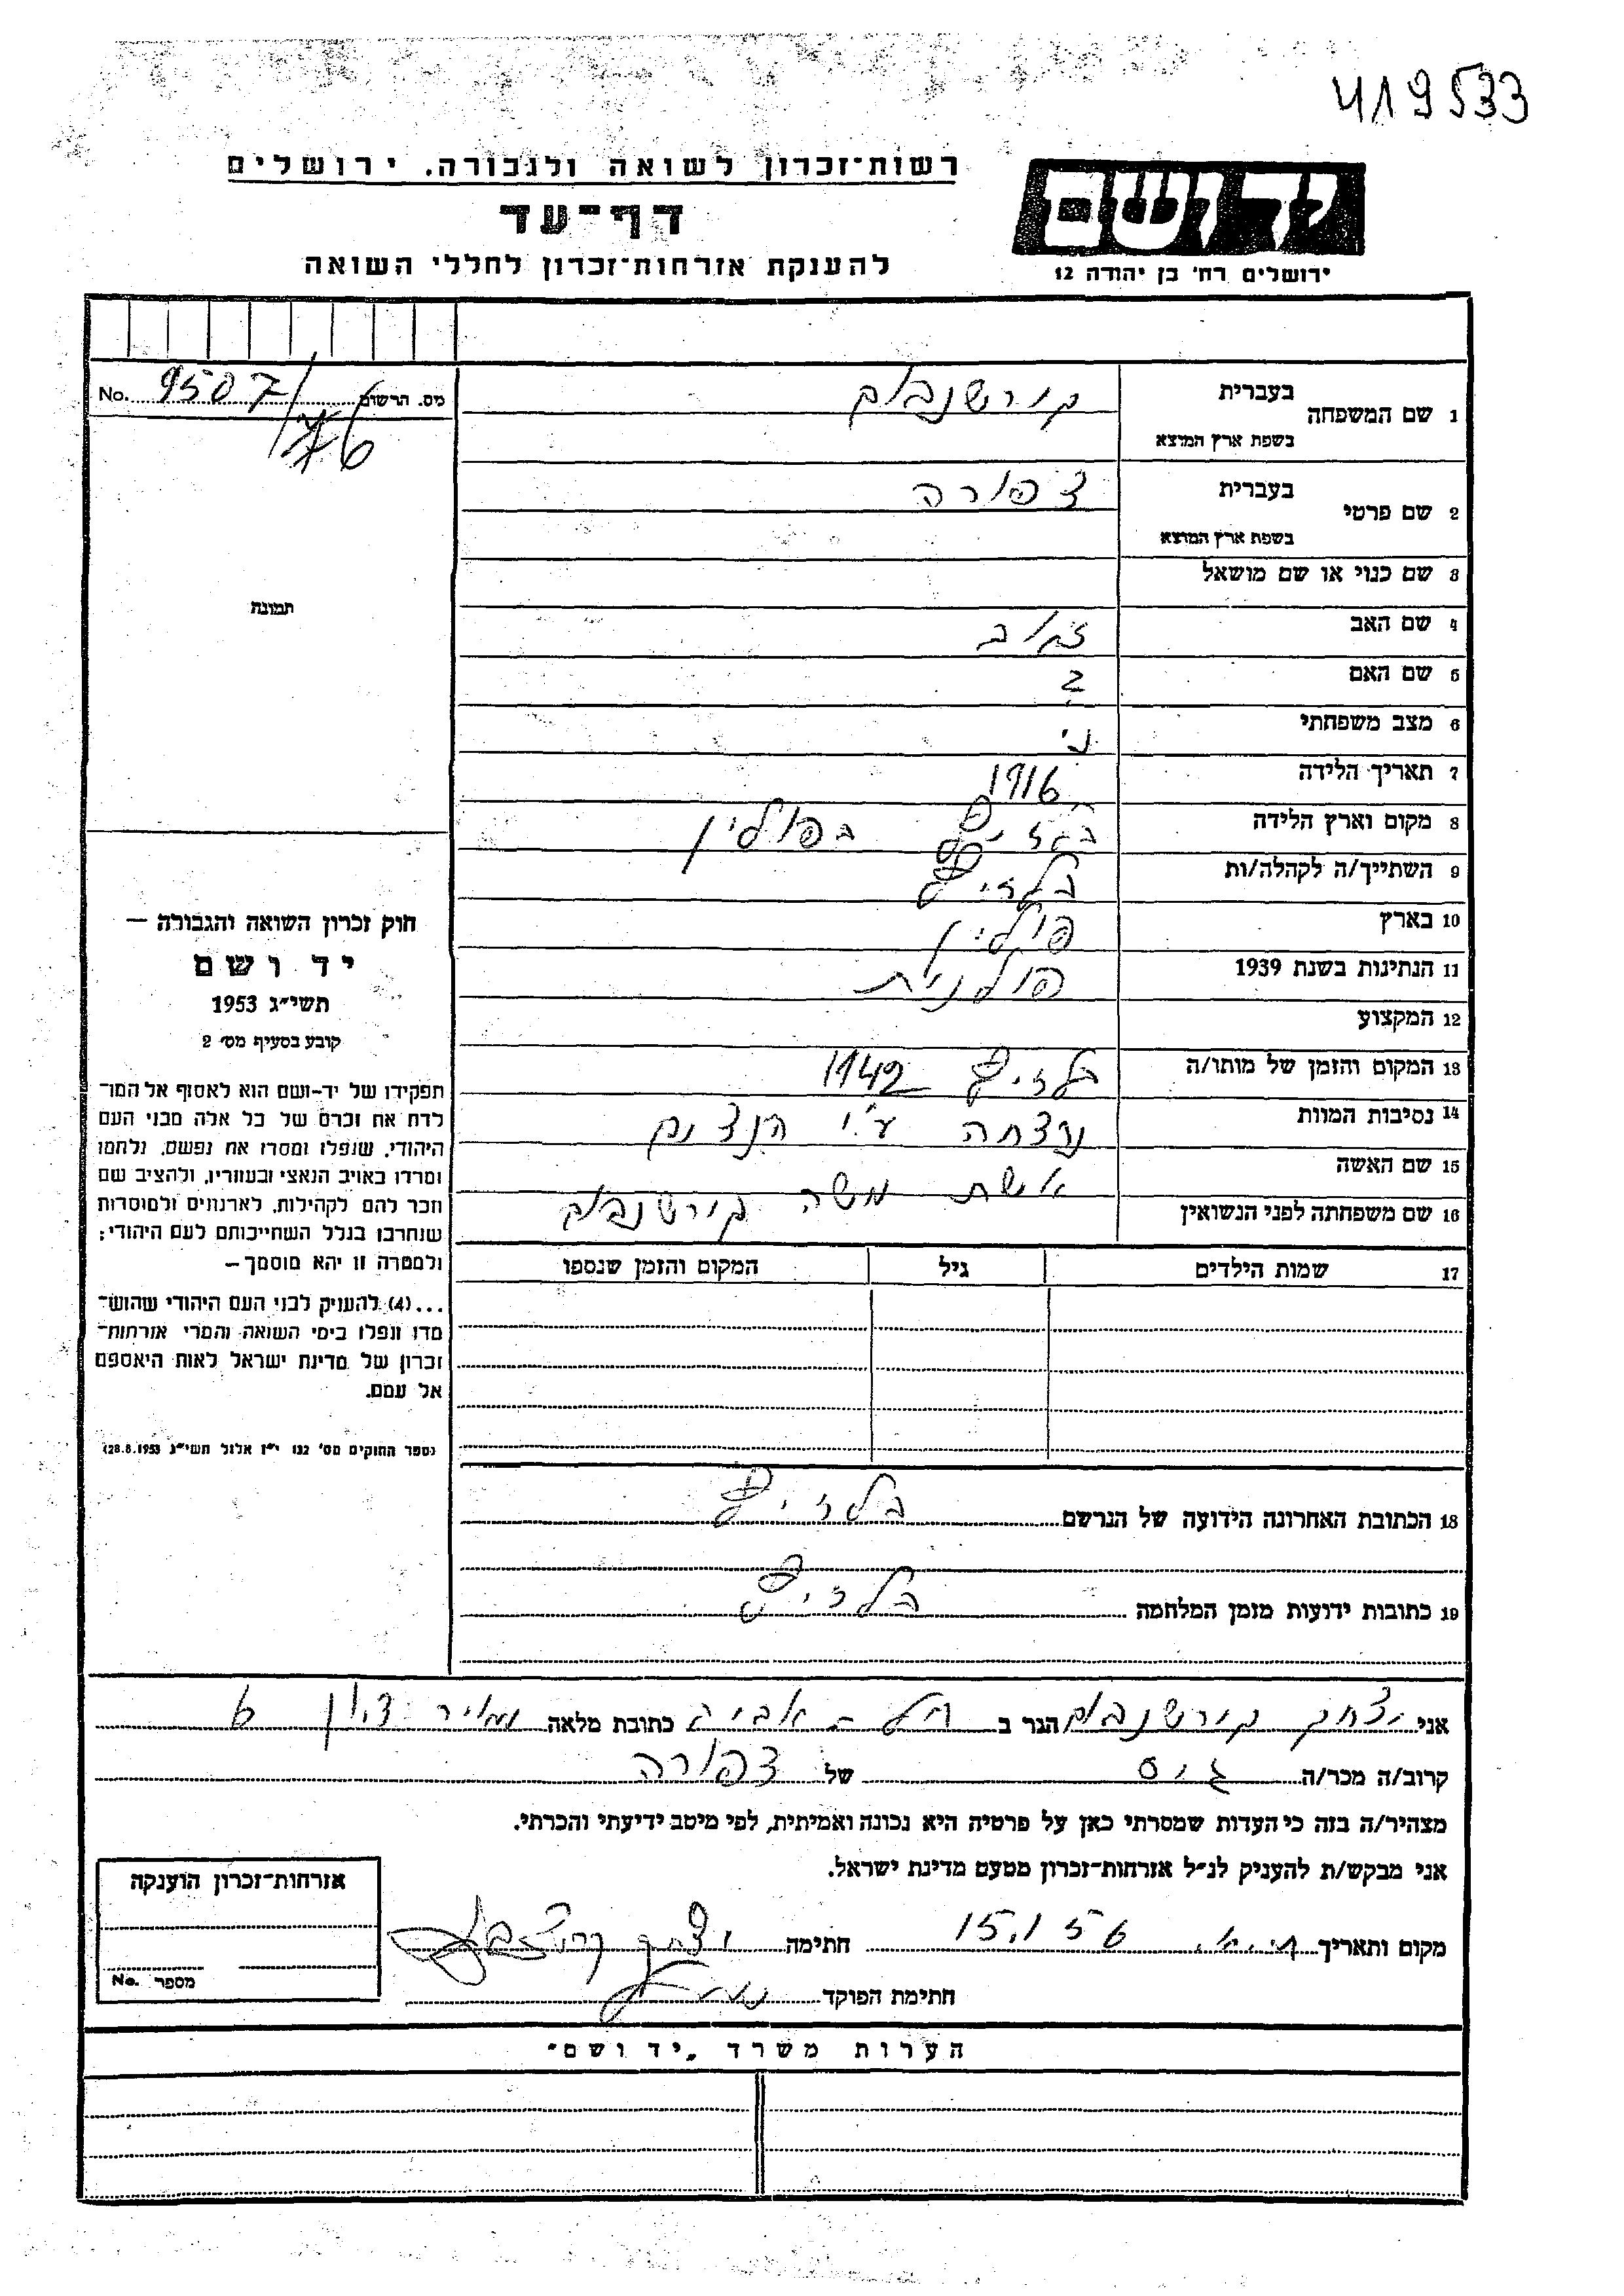 419533
רשות־זכרון לשואה ולגבורה. ירושלים
דף־עד
להענקת אזרחות־זכרון לחללי השואה
יד ושם
ירושלים רח' בן יהודה 12
מס. הרשום 9507/76 No.
1 שם המשפחה
בעברית קירשנבוים
בשפת ארץ המוצא
2 שם פרטי
בעברית צפורה
בשפת ארץ המוצא
3 שם כנוי או שם מושאל
תמונה
4 שם האב
5 שם האם
6 מצב משפחתי נ'
7 תאריך הלידה 1916
8 מקום וארץ הלידה בפולין
9 השתייך/ה לקהלה/ות
10 בארץ פולין
11 הנתינות בשנת 1939 פולנית
12 המקצוע
13 המקום והזמן של מותו/ה 1942
14 נסיבות המוות נרצחה ע"י הנצים
15 שם האשה אשת משה קירשנבוים
16 שם משפחתה לפני הנשואין
17 שמות הילדים גיל המקום והזמן שנספו
חוק זכרון השואה והגבורה —
יד ושם
תשי״ג 1953
קובע בסעיף מס' 2
תפקידו של יד-ושם הוא לאסוף אל המו־
לדת את זכרם של כל אלה מבני העם
היהודי, שנפלו ומסרו את נפשם, נלחמו
ומרדו באויב הנאצי ובעוזריו, ולהציב שם
וזכר להם לקהילות, לארגונים ולמוסדות
שנחרבו בגלל השתייכותם לעם היהודי;
ולמטרה זו יהא מוסמך —
...(4) להעניק לבני העם היהודי שהוש־
מדו ונפלו בימי השואה והמרי אזרחות־
זכרון של מדינת ישראל לאות היאספם
אל עמם.
(ספר החוקים מס' 132 י״ז אלול תשי״ג 28.8.1953)
18 הכתובת האחרונה הידועה של הנרשם
19 כתובות ידועות מזמן המלחמה
אני יצחק קירשנבוים הגר ב תל-אביב כתובת מלאה 6
קרוב/ה מכר/ה גיס של צפורה
מצהיר/ה בזה כי העדות שמסרתי כאן על פרטיה היא נכונה ואמיתית, לפי מיטב ידיעתי והכרתי.
אני מבקש/ת להעניק לנ״ל אזרחות־זכרון מטעם מדינת ישראל.
מקום ותאריך ת.א. 15.1 56 חתימה
חתימת הפוקד
אזרחות־זכרון הוענקה
מספר No.
הערות משרד „יד ושם״